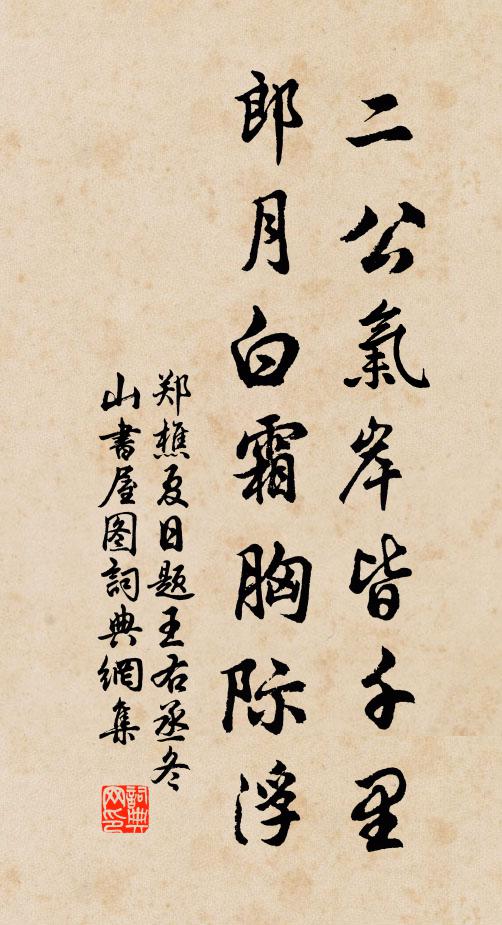 二公氣岸皆千里
郎月白霜胸际浮
郑樵夏日题王右丞冬
山書屋图詞典網集
詞典网印